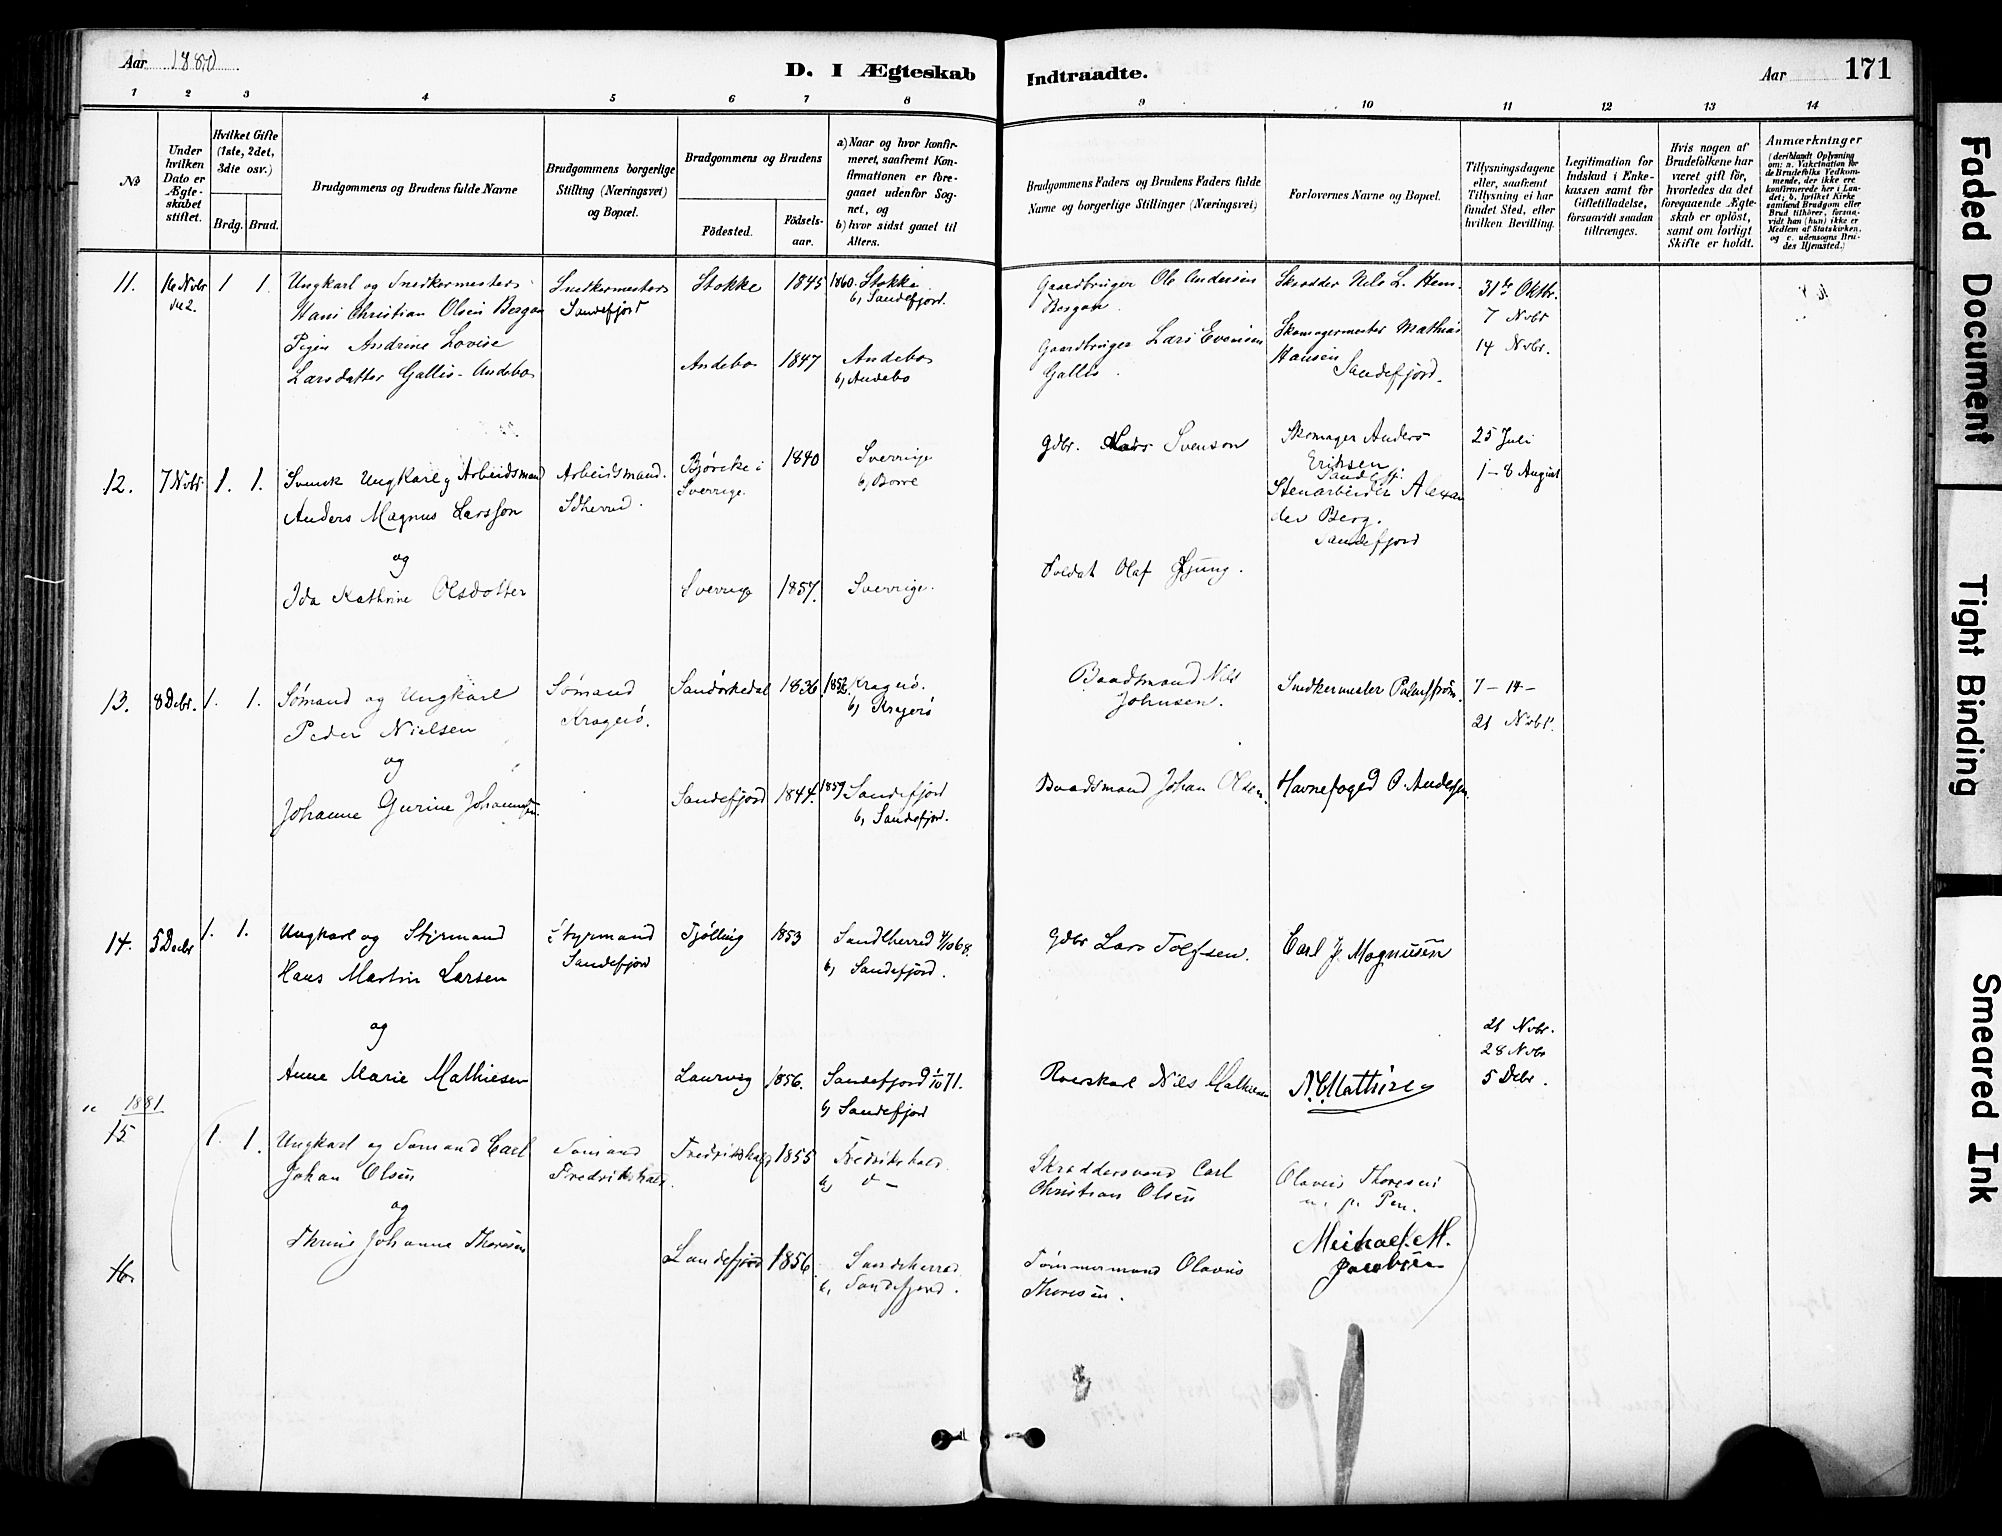 Aar 1880
D. I Ægteskab
Indtraadte.
Aar 171
1 2 3 4 5 6 7 8 9 10 11 12 13 14
№
Under hvilken Dato er Ægteskabet stiftet.
Hvilket Gifte (1ste, 2det, 3die osv.)
Brdg. Brud.
Brudgommens og Brudens fulde Navne
Brudgommens borgerlige Stilling (Næringsvei) og Bopæl.
Brudgommens og Brudens
Födested.
Födselsaar.
a) Naar og hvor konfirmeret, saafremt Konfirmationen er foregaaet udenfor Sognet, og
b) hvor sidst gaaet til Alters.
Brudgommens Faders og Brudens Faders fulde Navne og borgerlige Stillinger (Næringsvei)
Forlovernes Navne og Bopæl.
Tillysningsdagene eller, saafremt Tillysning ei har fundet Sted, efter hvilken Bevilling.
Legitimation for Indskud i Enkekassen samt for Giftetilladelse, forsaavidt saadan tiltrænges.
Hvis nogen af Brudefolkene har været gift för, hvorledes da det foregaaende Ægteskab er oplöst, samt om lovligt Skifte er holdt.
Anmærkninger (deriblandt Oplysning om: a. Vakcination for de Brudefolks Vedkommende, der ikke ere konfirmerede her i Landet; b. hvilket Kirkesamfund Brudgom eller Brud tilhörer, forsaavidt han (hun) ikke er Medlem af Statskirken, og c. udensogns Brudes Hjemsted.)
11. 16 Novbr 1 1. Ungkarl og Snedkermester Snedkermester Stokke 1845 1860 Stokke Gaardbruger Ole Andersen Skrædder Nils L. 31te Oktbr.
Hans Christian Olsen Bergan Sandefjord b, Sandefjord. Bergan. 7 Novbr
Pigen Andrine Lovise Andebo 1847 Andebo Gaardbruger Lars Evensen Skomagermester Mathias 14 Novbr.
Larsdatter Gallis - Andebo b, Andebo Gallis. Hansen Sandefjord.
12. 7 Novbr. 1. 1. Svensk Ungkarl og Arbeidsmand Arbeidsmand. Björcke i Sverrige. 1840 Sverrige Gdbr. Lars Svenson Skomager Anders 25 Juli
Anders Magnus Larsson b, Borre Eriksen Sandefj. 1 - 8 August
og Stenarbeider Alexander Berg. Sandefjord
Ida Kathrine Olsdotter Sverrige 1857. Sverrige. Soldat Olaf Ljung.
13. 8 Debr. 1. 1. Sömand og Ungkarl Sömand Sandökedal 1836 1852. Kragerö. Baadsmand Nils Snedkermester Palmström. 7 - 14 -
Peder Nielsen Kragerö. b, Kragerö Johnsen. 21 Novbr.
og
Johanne Gurine Johannesen. Sandefjord 1844. 1859 Sandefjord Baadsmand Johan Olsen. Havnefoged P. Andersen.
b, Sandefjord.
14. 5 Decbr 1. 1. Ungkarl og Styrmand Styrmand Tjölling 1853 Sandeherred 4/10 68. Gdbr Lars Tolfsen. Carl J. Magnusen
Hans Martin Larsen Sandefjord b, Sandefjord.
og 21 Novbr.
28 Novbr
Anne Marie Mathiesen Laurvig 1856. Sandefjord 1/10 71. Nils Mathiesen N. C. Mathisen 5 Debr.
b, Sandefjord
1881.
15 1. 1. Ungkarl og Sömand Carl Sömand Fredrikshald 1855 Fredrikshald. Skræddersvend Carl Olavus Thoresen
Johan Olsen Fredrikshald. b, d - Christian Olsen m. p. Pen.
og
Thrine Johanne Thoresen Sandefjord 1856. Sandeherred Tömmermand Olavus Michael M.
16. b, Sandefjord. Thoresen. Jacobsen
Faded Document
Tight Binding
Smeared Ink